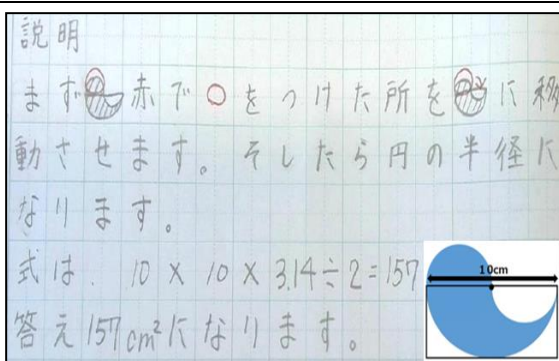 説明
まず赤で○をつけた所をに移
動させます。そしたら円の半径に
なります。
式は、10×10×3.14÷2=157
10cm
答え157cm²になります。